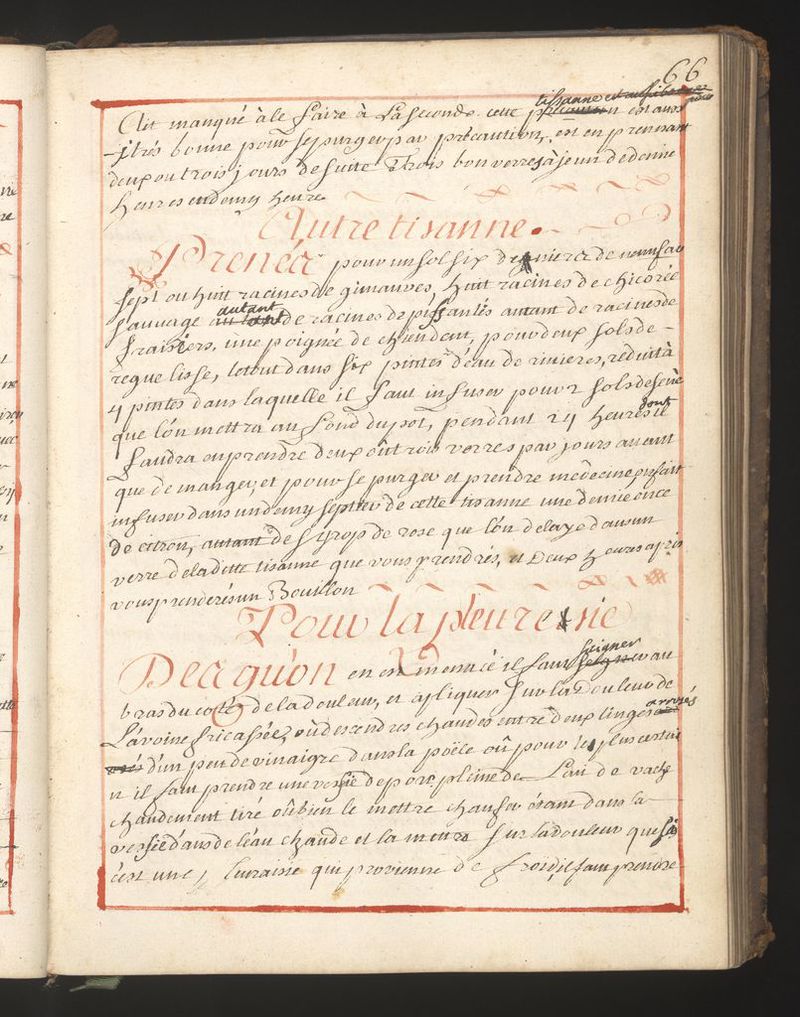 66
tissanne est aussi
Ait manqué à le faire à la seconde. cette est aussi
tres bonne pour se purger par précaution, est en prennant
deux ou trois jours de suite trois bon verres à jeun de demie
heures en demy heure
Autre tisanne.
Prenéz pour un sol six deniers de
sept ou huit racines de gimauves, huit racines de chicorée
sauvage autant de racines de pissanlés autant de racines de
fraisiers, une poignée de chiendent, pour deux sols de
reque lisse, le tout dans six pintes d'eau de rivieres, réduit à
4 pintes dans laquelle il faut infuser pour 2 sols de sené
que l'ón mettra au fond du pot, pendant 24 heures dont il
faudra en prendre deux oû trois verres par jours avant
que de manger, et pour se purger et prendre medecine en fait
infuser dans un demy septier de cette tisanne une demie once
de citron, autant de syrop de rose que l'ón delaye dans un
verre de la ditte tisanne que vous prendrés, et deux heures apris
vous prenderés un Bouillon
Pour la pleuresie
Des qu'on en est menacé il faut seigner au
bras du costé de la douleur, et apliquer sur la Douleur de
L'avoine fricassée, oû des cendres chaudes entre deux linges arrosés
d'un peu de vinaigre dans la poële oû pour le plus certai
n il faut prendre une vessie de porc pleine de Lait de vache
chaudement tiré oû bien le mettre chaufer étant dans la
vessie dans de l'eau chaude et la mettre sur la douleur que si
c'est une, qui provienne de froid, il faut prendre